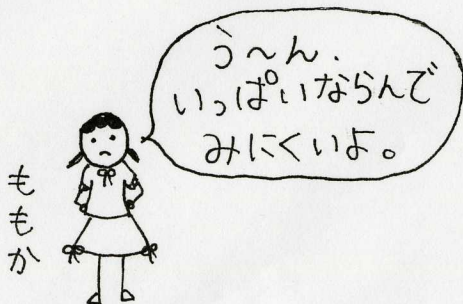 う～ん.
いっぱいならんで
みにくいよ。
ももか